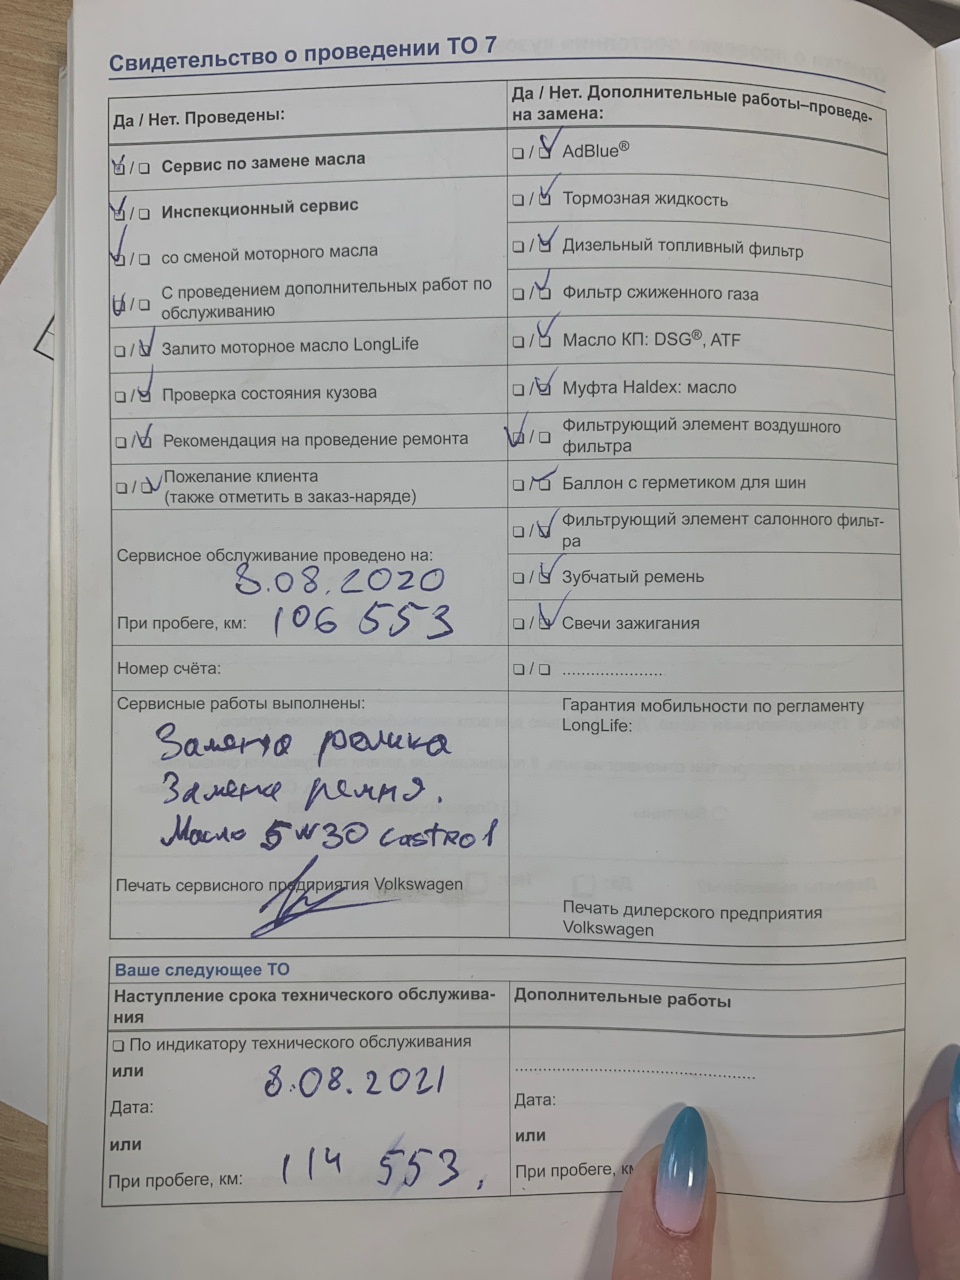 Свидетельство о проведении ТО 7
Да / Нет. Проведены:
☑ / ❏ Сервис по замене масла
☑ / ❏ Инспекционный сервис
☑ / ❏ со сменой моторного масла
☑ / ❏ С проведением дополнительных работ по
обслуживанию
❏ / ☑ Залито моторное масло LongLife
❏ / ☑ Проверка состояния кузова
❏ / ☑ Рекомендация на проведение ремонта
❏ / ☑ Пожелание клиента
(также отметить в заказ-наряде)
Сервисное обслуживание проведено на:
8.08.2020
При пробеге, км: 106 553
Номер счёта:
Сервисные работы выполнены:
Замена ролика
Замена ремня.
Масло 5W30 Castrol
Печать сервисного предприятия Volkswagen
Да / Нет. Дополнительные работы–проведе-
на замена:
❏ / ☑ AdBlue®
❏ / ☑ Тормозная жидкость
❏ / ☑ Дизельный топливный фильтр
❏ / ☑ Фильтр сжиженного газа
❏ / ☑ Масло КП: DSG®, ATF
❏ / ☑ Муфта Haldex: масло
☑ / ❏ Фильтрующий элемент воздушного
фильтра
❏ / ☑ Баллон с герметиком для шин
❏ / ☑ Фильтрующий элемент салонного фильт-
ра
❏ / ☑ Зубчатый ремень
❏ / ☑ Свечи зажигания
❏ / ❏ ......................
Гарантия мобильности по регламенту
LongLife:
Печать дилерского предприятия
Volkswagen
Ваше следующее ТО
Наступление срока технического обслужива-
ния
❏ По индикатору технического обслуживания
или
8.08.2021
Дата:
или
При пробеге, км: 114 553,
Дополнительные работы
....................................................
Дата:
или
При пробеге,